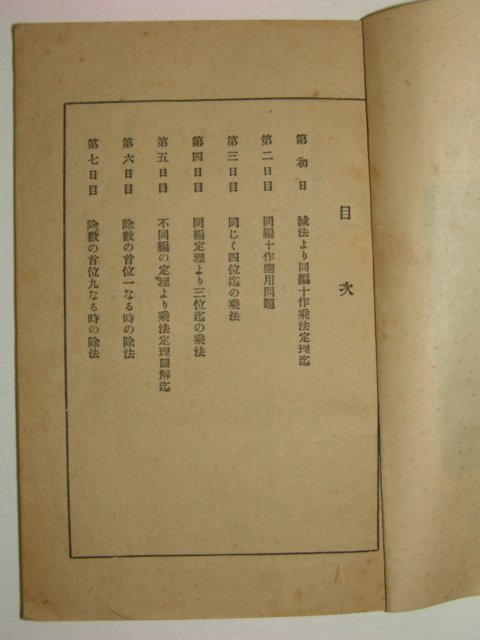 目次
第初日 減法より同編十作乗法定理迄
第二日目 同編十作應用問題
第三日目 同じく四位迄の乗法
第四日目 同編定理より三位迄の乗法
第五日目 不同編の定理より乗法定理圖解迄
第六日目 除數の首位一なる時の除法
第七日目 除數の首位九なる時の除法